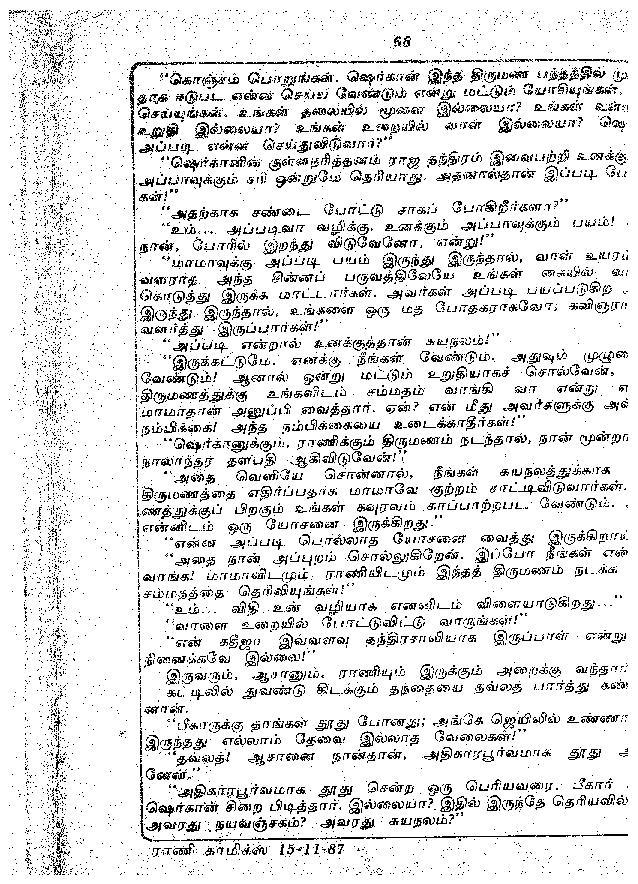 66
"கொஞ்சம் பொறுங்கள். ஷெர்கான் இந்த திருமண பந்தத்தில் மு
தாக ஈடுபட என்ன செய்ய வேண்டும் என்று மட்டும் யோசியுங்கள்.
செய்யுங்கள். உங்கள் தலையில் மூளை இல்லையா? உங்கள்
உறுதி இல்லையா? உங்கள் உறையில் வாள் இல்லையா? ஷெ
அப்படி என்ன செய்துவிடுவார்?"
"ஷெர்கானின் குள்ளநரித்தனம் ராஜ தந்திரம் இவைபற்றி உனக்கு
அப்பாவுக்கும் சரி ஒன்றுமே தெரியாது. அதனால்தான் இப்படி பே
கள்!"
"அதற்காக சண்டை போட்டு சாகப் போகிறீர்களா?"
"உம்... அப்படிவா வழிக்கு. உனக்கும் அப்பாவுக்கும் பயம்!
நான், போரில் இறந்து விடுவேனோ, என்று!"
"மாமாவுக்கு அப்படி பயம் இருந்து இருந்தால், வாள் உயரம்
வளராத அந்த சின்னப் பருவத்திலேயே உங்கள் கையில் வா
கொடுத்து இருக்க மாட்டார்கள். அவர்கள் அப்படி பயப்படுகிற
இருந்து இருந்தால், உங்களை ஒரு மத போதகராகவோ, கவிஞரா
வளர்த்து இருப்பார்கள்!"
"அப்படி என்றால் உனக்குத்தான் சுயநலம்!"
"இருக்கட்டுமே. எனக்கு நீங்கள் வேண்டும். அதுவும் முழுமை
வேண்டும்! ஆனால் ஒன்று மட்டும் உறுதியாகச் சொல்வேன்,
திருமணத்துக்கு உங்களிடம் சம்மதம் வாங்கி வா என்று எ
மாமாதான் அனுப்பி வைத்தார். ஏன்? என் மீது அவர்களுக்கு அவ்
நம்பிக்கை! அந்த நம்பிக்கையை உடைக்காதீர்கள்!"
"ஷெர்கானுக்கும், ராணிக்கும் திருமணம் நடந்தால், நான் மூன்றா
நாலாந்தர தளபதி ஆகிவிடுவேன்!"
"அதை வெளியே சொன்னால், நீங்கள் சுயநலத்துக்காக
திருமணத்தை எதிர்ப்பதாக மாமாவே குற்றம் சாட்டிவிடுவார்கள்.
ணத்துக்குப் பிறகும் உங்கள் கவுரவம் காப்பாற்றபட வேண்டும்.
என்னிடம் ஒரு யோசனை இருக்கிறது."
"என்ன அப்படி பொல்லாத யோசனை வைத்து இருக்கிறாய்
"அதை நான் அப்புறம் சொல்லுகிறேன். இப்போ நீங்கள் என்
வாங்க! மாமாவிடமும், ராணியிடமும் இந்தத் திருமணம் நடக்க
சம்மதத்தை தெரிவியுங்கள்!"
"உம்... விதி உன் வழியாக என்னிடம் விளையாடுகிறது..."
"வாளை உறையில் போட்டுவிட்டு வாருங்கள்!"
"என் கதீஜா இவ்வளவு தந்திரசாலியாக இருப்பாள் என்று
நினைக்கவே இல்லை!"
இருவரும், ஆசானும், ராணியும் இருக்கும் அறைக்கு வந்தார்
கட்டிலில் துவண்டு கிடக்கும் தந்தையை தவ்லத் பார்த்து கண்
னான்.
"பீகாருக்கு தாங்கள் தூது போனது; அங்கே ஜெயிலில் உண்ணா
இருந்தது எல்லாம் தேவை இல்லாத வேலைகள்!"
"தவ்லத்! ஆசானை நான்தான், அதிகாரபூர்வமாக தூது அ
னேன்."
"அதிகாரபூர்வமாக தூது சென்ற ஒரு பெரியவரை, பீகார்
ஷெர்கான் சிறை பிடித்தார். இல்லையா? இதில் இருந்தே தெரியவில்
அவரது நயவஞ்சகம்? அவரது சுயநலம்?"
ராணி காமிக்ஸ் 15-11-87